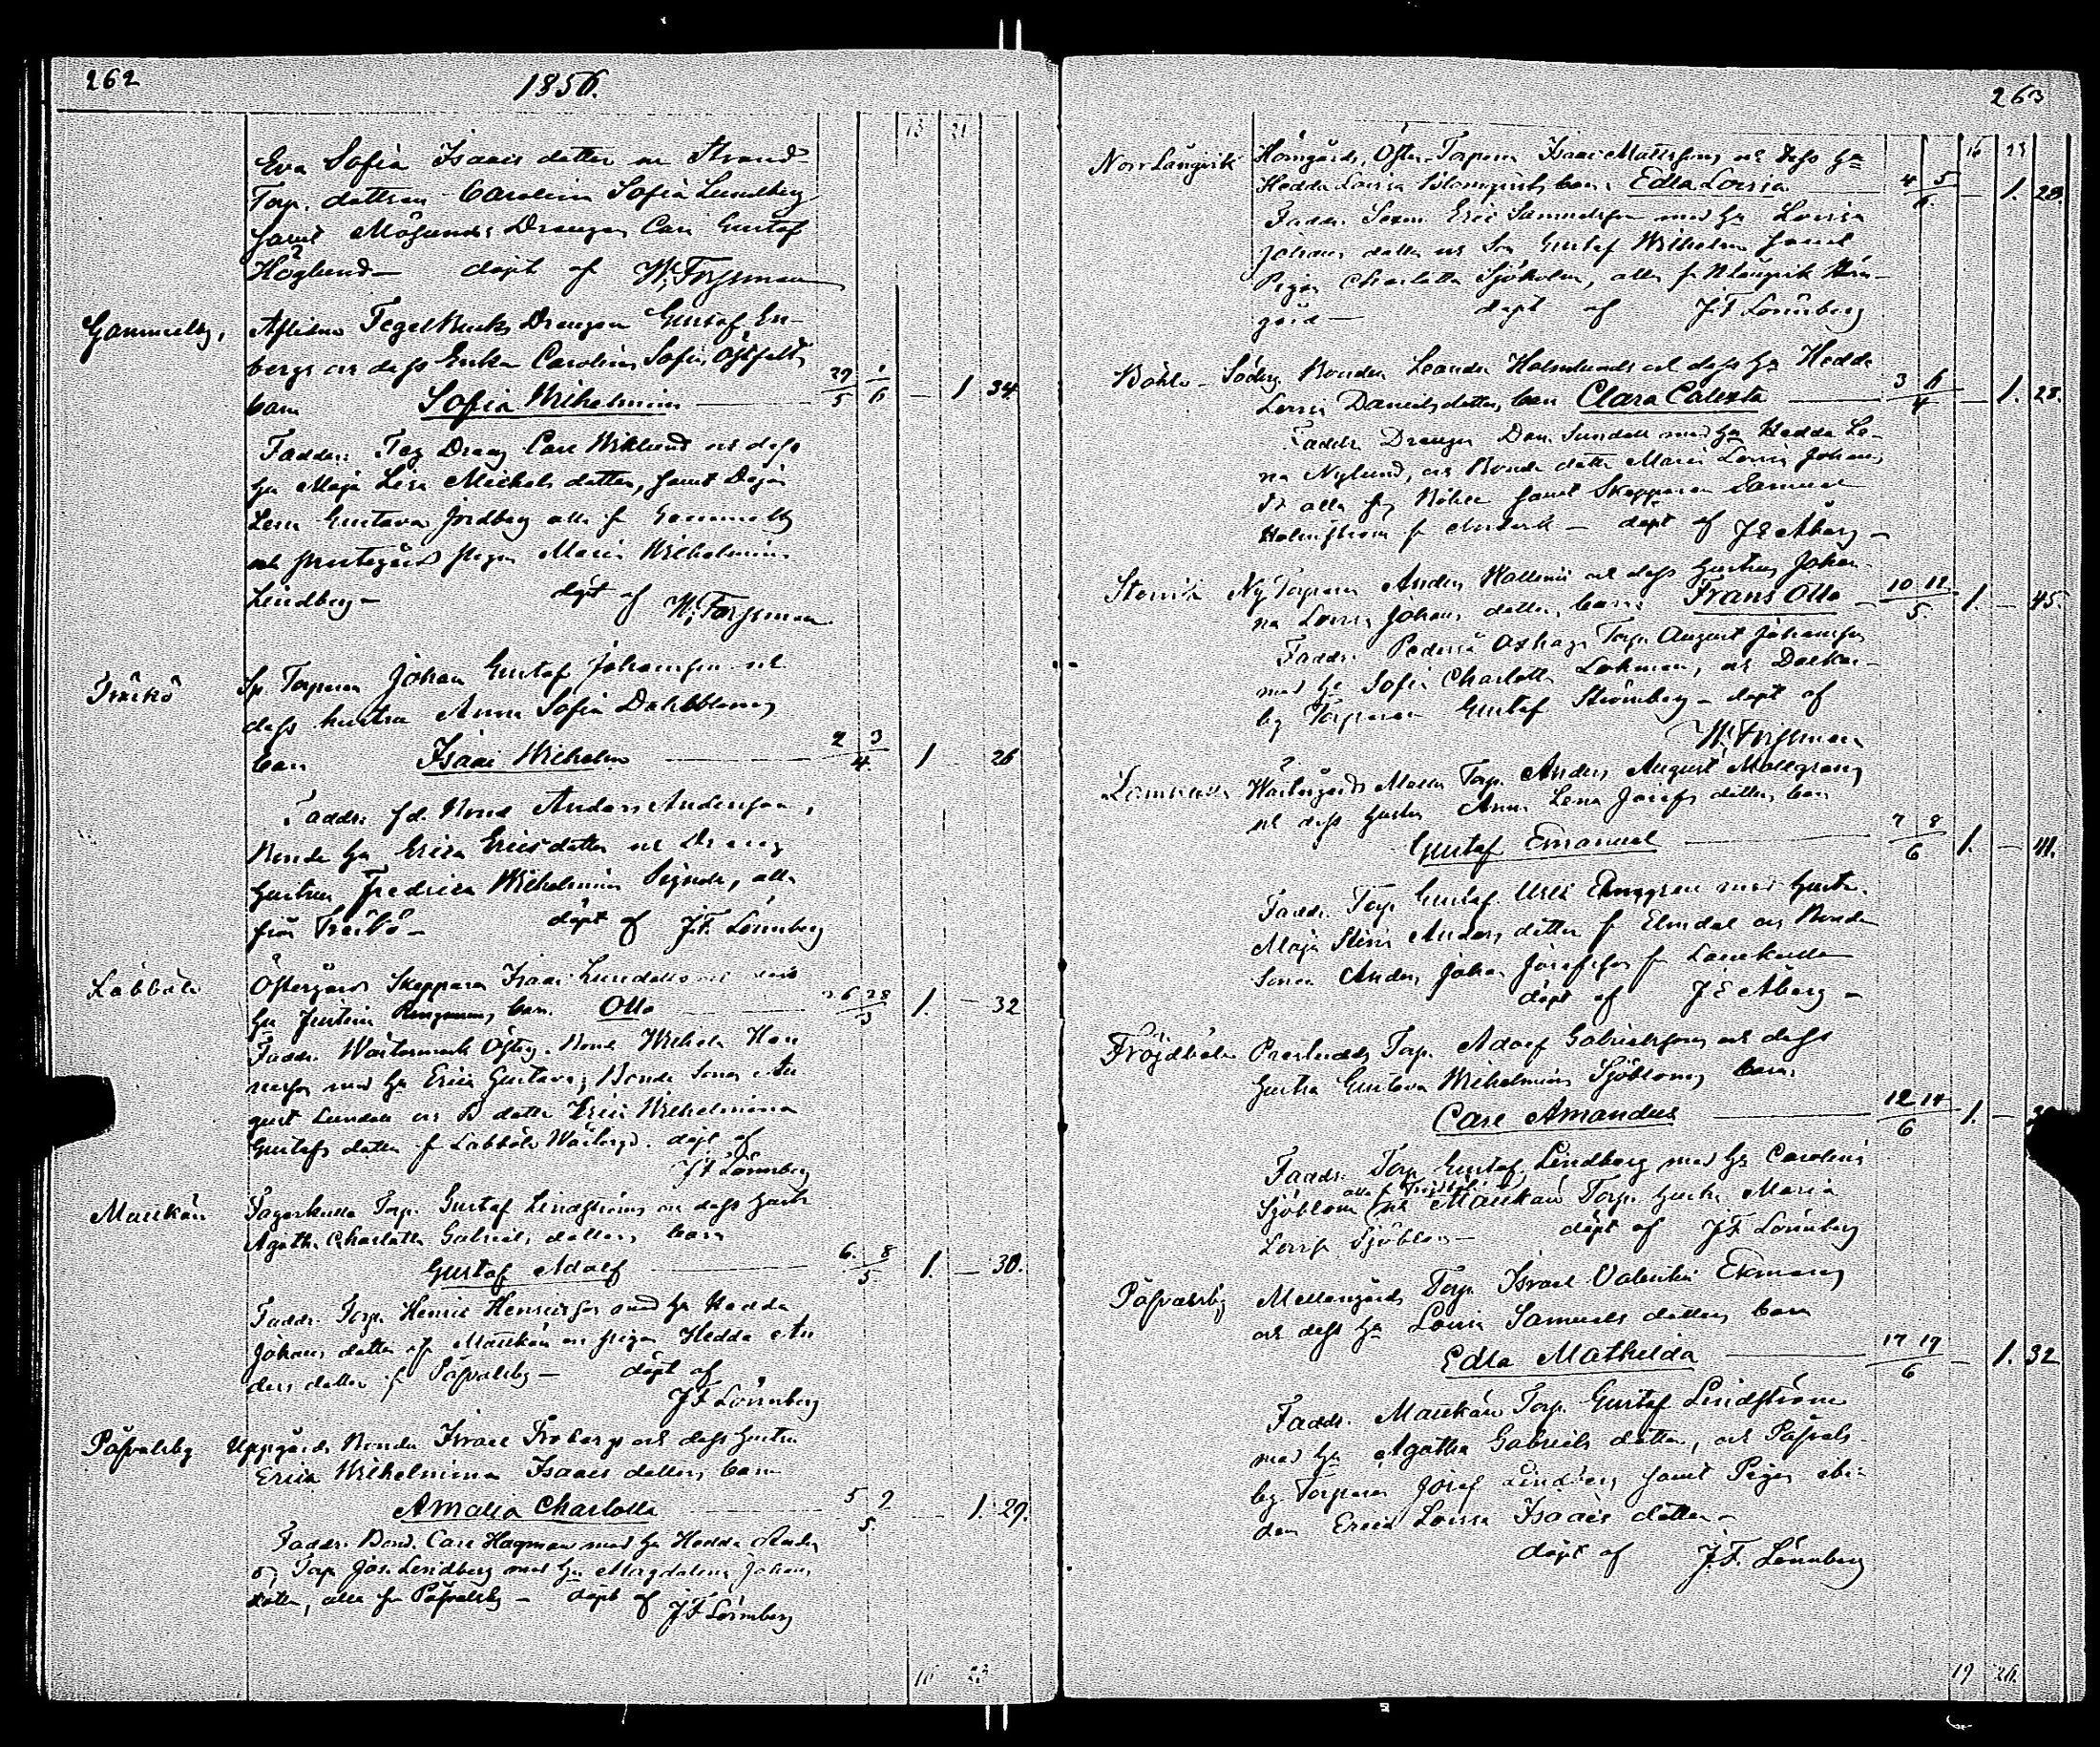 262
1856.
13 21
Eva Sofia Isaacs dotter en Strand
Torp. dottren Carolina Sofia Lundberg
samt Drengen Carl Gustaf
Höglund — döpt af W. Forssman
Gammelby, Aflidne Tegelbruks Drengen Gustaf En-
bergs och dess Enka Carolina Sofia
barn Sofia Wilhelmina — 29 1 / 5 6 — 1 34
Faddr: Teg Dreng Carl Wiklund och dess
Hu Maja Lisa Michels dotter, samt Pigan
Lena Gustava Jordberg alla fr Gammelby
och prestegårds pigan Maria Wilhelmina
Lindberg — döpt af W. Forssman
Träskö Sp. Torparen Johan Gustaf Johansson och
dess hustru Anna Sofia Dahlbloms
barn Isaac Wilhelm — 2 3 / 4. 1 26
Faddr: fd. Bond Anders Andersson,
Bonde Hu Erica Ericsdotter och Dreng
hustrun Fredrica Wilhelmina, alla
från Träskö — döpt af J.F. Lönnberg
Labböle Östergårds Skepparen Isaac Lundells och dess
Hu Justina barn. Otto — 26 28 / 5 1. — 32
Faddr. Österg. Bond Wilhelm Han
nusson med Hu Erica Gustava; Bonde Sonen Au
gust Lundell och B dotter Erica Wilhelmina
Gustafs dotter fr Labböle döpt af
J F Lönnberg
Mattkärr Fagerkulla Torp. Gustaf Lindströms och dess hustr
Agatha Charlotta Gabriels dotters barn
Gustaf Adolf — 6. 8 / 5 1. — 30.
Faddr. Torp. Henric Henricsson med Hu Hedda
Johans dotter fr Mattkärr och pigan Hedda An
ders dotter fr Påfvalsby — döpt af
J F Lönnberg
Påfvalsby Uppgårds Bonden Israel Frobergs och dess hustru
Erica Wilhelmina Isaacs dotters barn
Amalia Charlotta — 5 9 / 5. — 1. 29.
Faddr. Bond. Carl Hagman med Hu Hedda
o Torp Jos. Lindberg med Hu Magdalena Johans
dotter, alla fr Påfvalsby — döpt af J F Lönnberg
16 23
263
16 23
Norr Långvik Östr. Torparen Isaac Mattssons och dess Hu
Hedda Lovisa Blomqvists barn Edla Lovisa — 4 5 / 6. — 1. 28.
Faddr. Eric Samuelsson med Hu Lovisa
Johans dotter och Son Gustaf Wilhelm samt
Pigan Charlotta Sjöholm, alla fr N Långvik
gård — döpt af J.F. Lönnberg
Böhle — Söderg. Bonden Leander Holmlunds och dess Hu Hedda
Lovisa Danielsdotters barn Clara Calixta — 3 6 / 4 — 1. 28.
Faddr Drengen Dan. Sundell med Hu Hedda Le-
na Nylund, och Bonde dottr Maria Lovisa Johans
dr alla fr Böhle samt Skepparen Samuel
Holmström fr — döpt af J E Åberg —
Storvik Ny Torparen Anders Wallenii och dess hustrus Johan-
na Lovisa Johans dotters barn Frans Otto — 10 12 / 5. 1. — 45.
Faddr. Pederså Torp. August Johansson
med Hu Sofia Charlotta Lohman, och Dalkar-
by Torparen Gustaf Strömberg — döpt af
W. Forssman
Torp. Anders August Mollgrens
och dess hustru Anna Lena Josefs dotters barn
Gustaf Emanuel — 7 8 / 6 1. — 41.
Faddr. Torp. Gustaf Ulric med hustr.
Maja Stina Anders dotter fr Elmdal och Bonde
Sonen Anders Johan Josefsson fr
döpt af J E Åberg —
Fröjdböle Torp. Adolf Gabrielssons och dess
hustru Gustava Wilhelmina Sjöbloms barn
Carl Amandus — 12 14 / 6 1. —
Faddr. Torp Gustaf Lindberg med Hu Carolina
Sjöblom alla fr Fröjdböle och Mattkärr Torp. hustr. Maria
Lovisa Sjöblom — döpt af J F Lönnberg
Påfvalsby Mellangårds Torp. Israel Valentin Ekmans
och dess Hu Lovisa Samuels dotters barn
Edla Mathilda — 17 19 / 6 — 1. 32
Faddr. Mattkärr Torp. Gustaf Lindström
med Hu Agatha Gabriels dotter, och Påfvals-
by Torparen Josef Lindberg samt Pigan ibi-
dem Erica Lovisa Isaacs dotter —
döpt af J.F. Lönnberg
19 26.